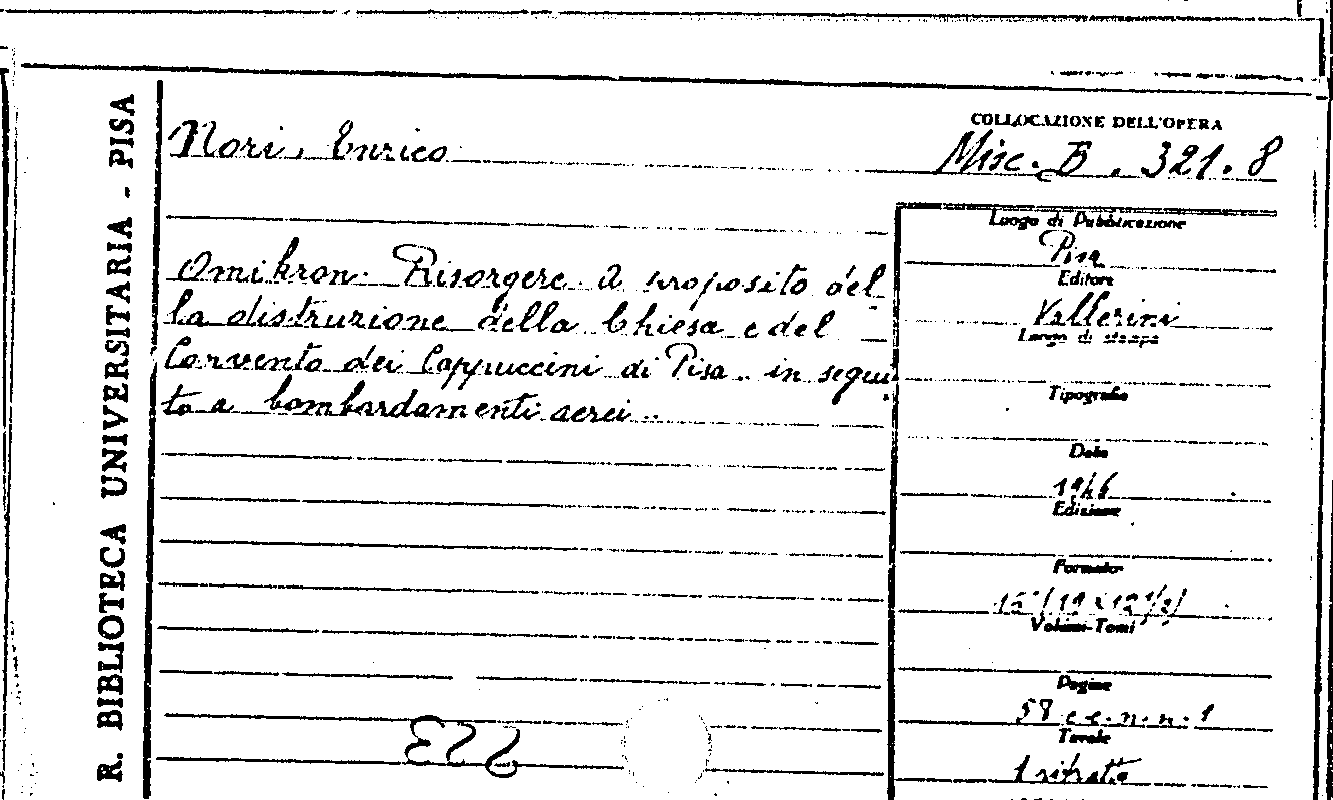 R. BIBLIOTECA UNIVERSITARIA - PISA
Nori, Enrico
COLLOCAZIONE DELL'OPERA
Misc. B. 321. 8
Omikron. Risorgere. A proposito del
la distruzione della Chiesa e del
Convento dei Cappuccini di Pisa.. in segui
to a bombardamenti aerei..
Luogo di Pubblicazione
Pisa
Editore
Vallerini
Luogo di stampa
Tipografia
Data
1946
Edizione
Formato
Volumi-Tomi
Pagine
58 c c. n. n. 1
Tavole
1 ritratto